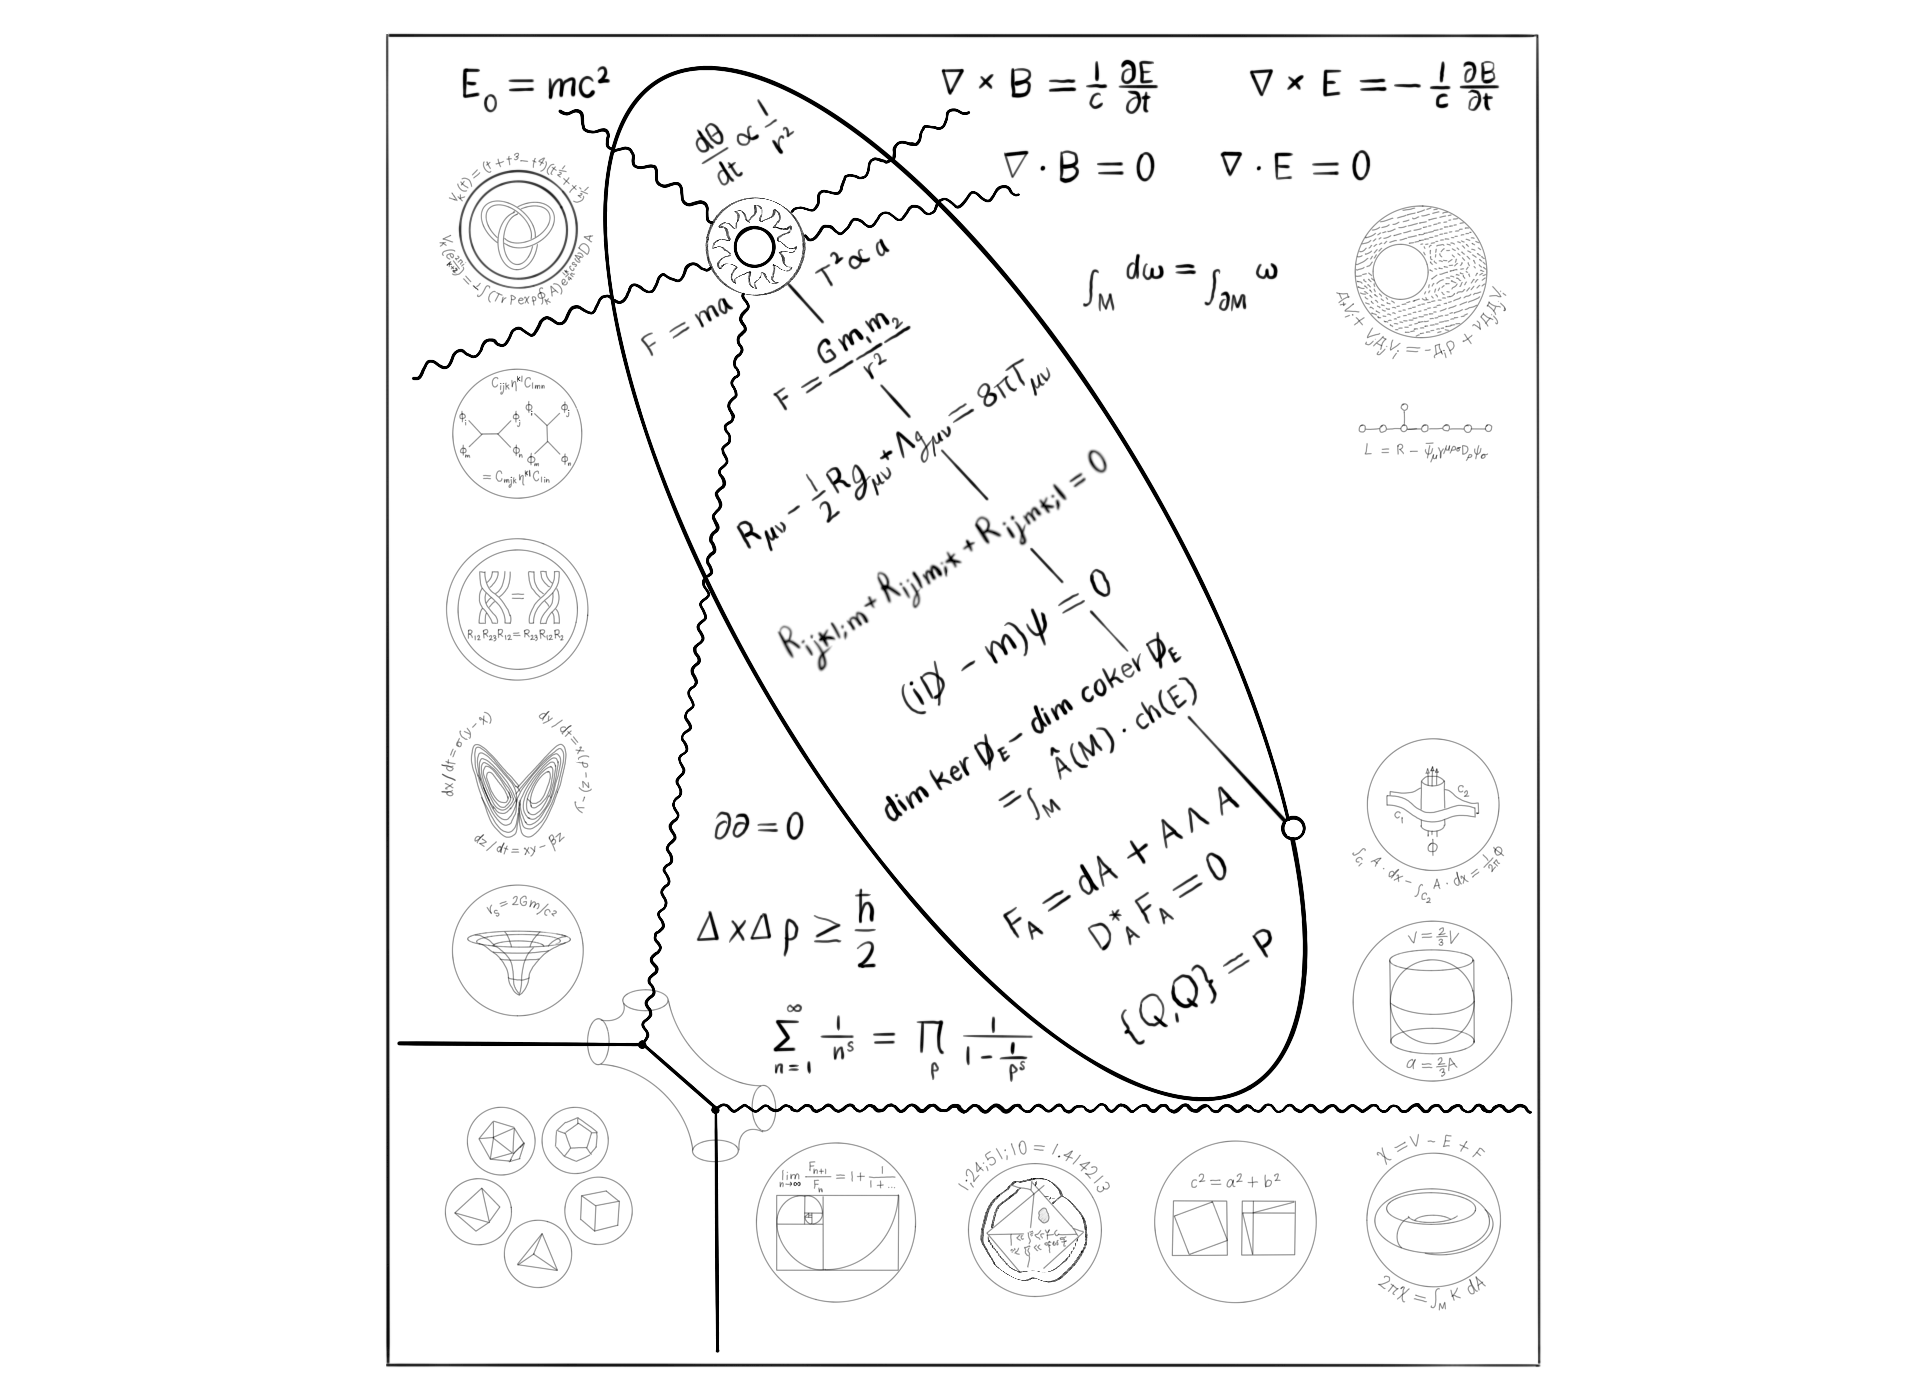 E₀ = mc²
∇ × B = 1/c ∂E/∂t
∇ × E = − 1/c ∂B/∂t
∇ · B = 0
∇ · E = 0
dθ/dt ∝ 1/r²
T² ∝ a
F = ma
F = Gm₁m₂/r²
R_μν − 1/2 R g_μν + Λg_μν = 8πT_μν
R_ijkl;m + R_ijlm;k + R_ijmk;l = 0
(iD̸ − m)ψ = 0
dim ker D̸_E − dim coker D̸_E
= ∫_M Â(M) · ch(E)
F_A = dA + A ∧ A
D*_A F_A = 0
{Q,Q} = P
∫_M dω = ∫_∂M ω
∂∂ = 0
Δx Δp ≥ ħ/2
∞ Σ n = 1 1/nˢ = Π p 1/(1 − 1/pˢ)
V_K(t) = (t + t³ − t⁴)(t^½ + t^-½)
C_ijk η^kl C_lmn
ϕ_i ϕ_j ϕ_i ϕ_j
ϕ_m ϕ_n ϕ_m ϕ_n
= C_mjk η^kl C_lin
=
R₁₂R₂₃R₁₂ = R₂₃R₁₂R₂
dx/dt = σ(y−x)
dy/dt = x(ρ−z)−y
dz/dt = xy − βz
r_s = 2Gm/c²
Д_t V_i + V_j Д_j V_i = −Д_i p + νД_jД_j V_i
L = R − ψ̄_μ γ^μρσ D_ρ ψ_σ
C₂
C₁
Φ
∫_C₁ A · dx − ∫_C₂ A · dx = 1/2π Φ
V = 2/3 V
a = 2/3 A
lim n→∞ F_n+1/F_n = 1 + 1/(1 + ...)
1;24;51;10 = 1.414213
c² = a² + b²
χ = V − E + F
2πχ = ∫_M K dA